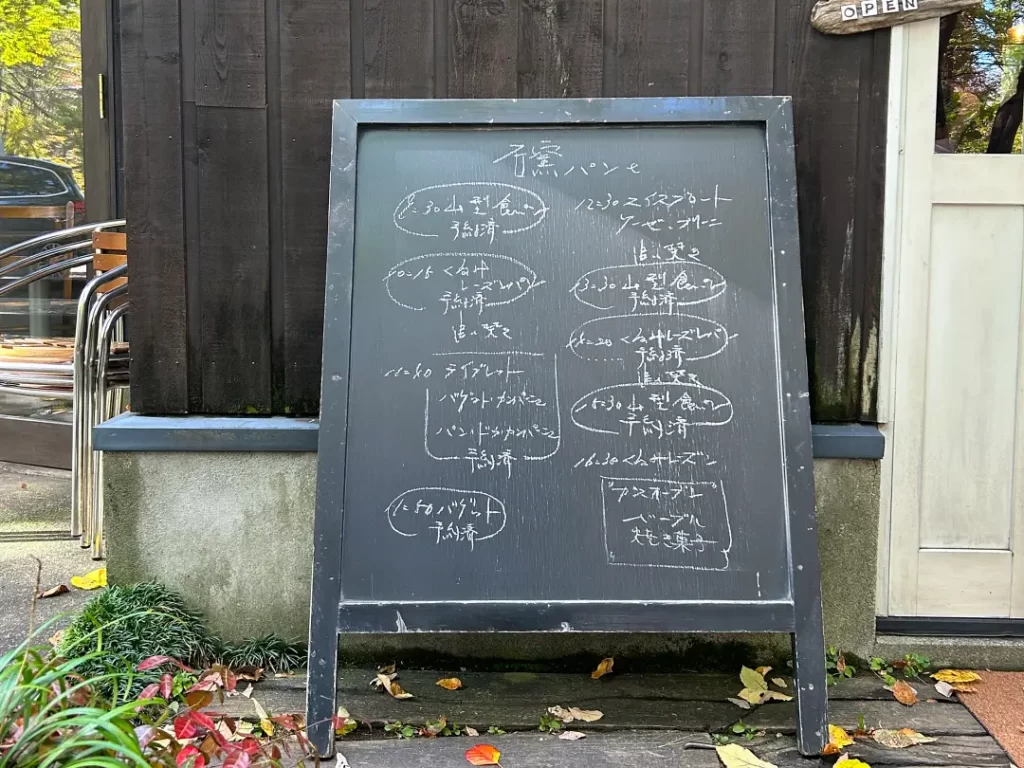 OPEN
石窯パン
8=30 山型食パン
予約済
10=15 くるみ
レーズンパン
予約済
追い焚き
タイプレット
バゲット・カンパーニュ
パン・ド・カンパーニュ
予約済
1=50 バゲット
予約済
12=30
追い焚き
13=30 山型食パン
予約済
くるみレーズンパン
予約済
追い焚き
15=30 山型食パン
予約済
16=30 くるみレーズン
"ガスオーブン"
ベーグル
焼き菓子